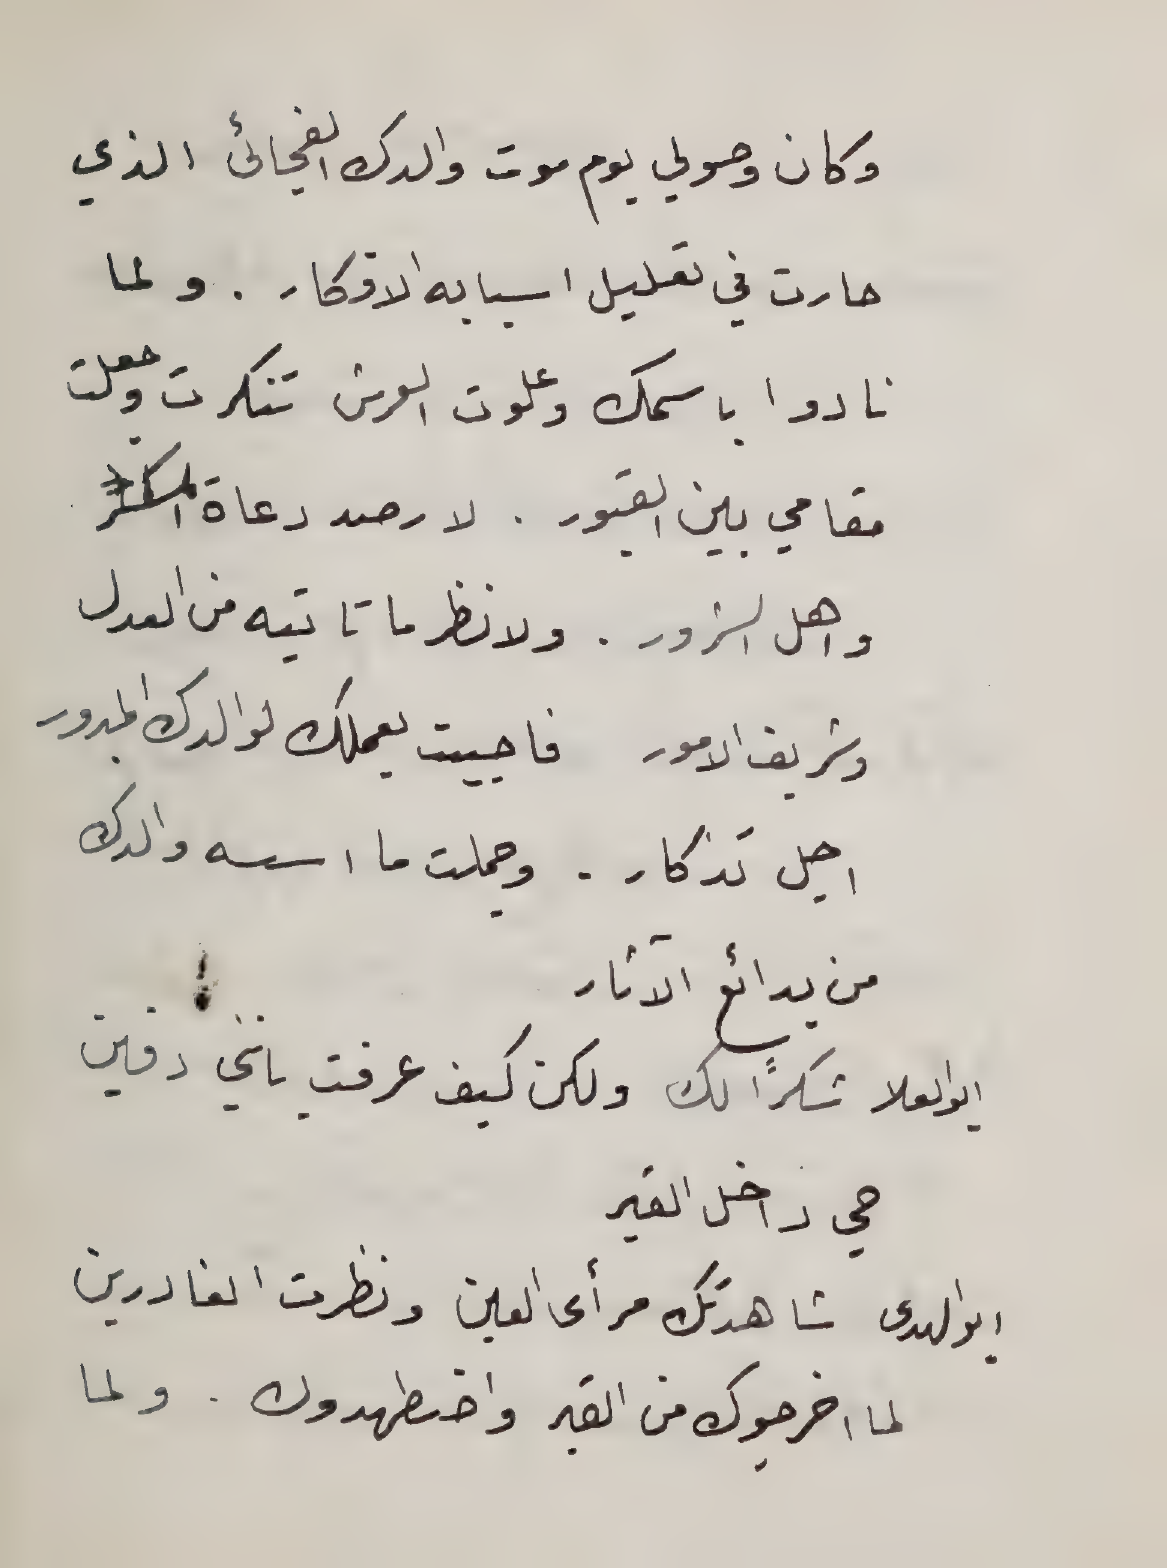 وكان وصولي يوم موت والدك الفجائئ الذي
حارت في تعليل اسبابه الافكار . ولما
نادوا باسمك وعلوت العرش تنكرت وجعلت
مقامي بين القبور . لارصد دعاة
واهل الشرور . ولانظر ما تاتيه من العدل
وشريف الامور فاحييت بعملك لوالدك المبرور
اجل تذكار . وحملت ما اسسه والدك
من بدائع الآثار
ابو العلا شكرًا لك ولكن كيف عرفت بانني دفين
حي داخل القبر
ابو الهدى شاهدتك مرأى العين ونظرت الغادرين
لما اخرجوك من القبر واضطهدوك . ولما